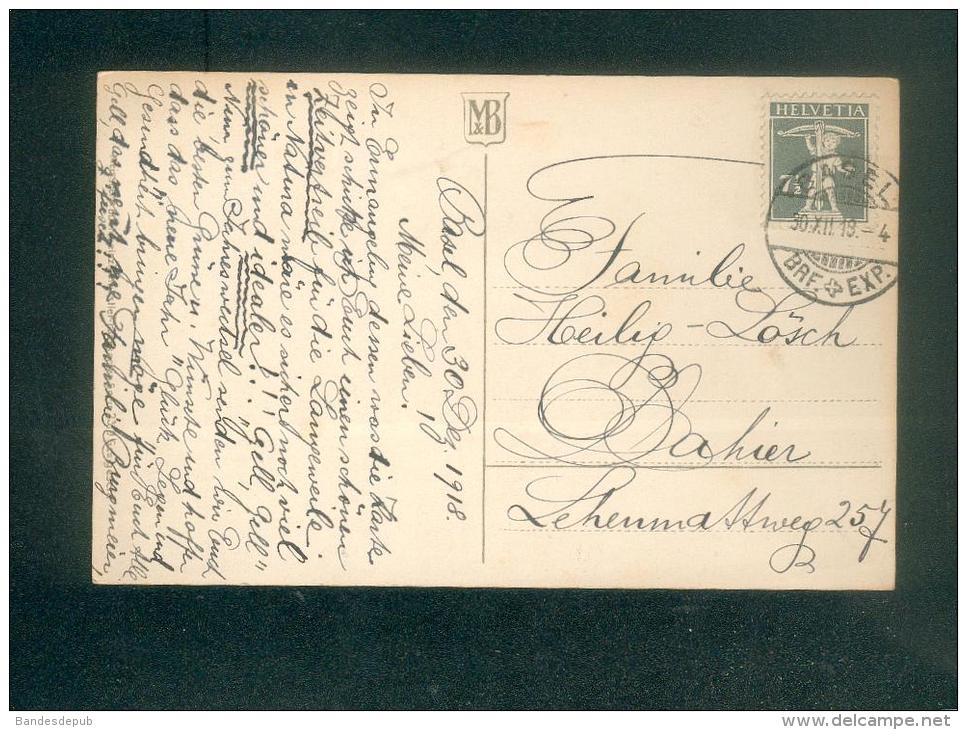 Basel, den 30. Dez. 1918.
Meine Lieben!
In Ermangelung dessen was die Karte
zeigt schicke ich Euch einen schönen
Zeitvertreib für die Langeweile.
in Natura wäre es sicher noch viel
schöner und idealer!! "Gell, Gell"
Nun zum Jahreswechsel senden wir Euch
die besten Grüsse u. Wünsche und hoffe
dass das neue Jahr "Glück, Segen und
Gesundheit bringen möge für Euch Alle
Gell, das
M&B
HELVETIA
7½
BASEL
30.XII.18.-4
BRF. EXP.
Familie
Heilig-Lösch
Bahier
Lehenmattweg 257
B
Bandesdepub
www.delcampe.net